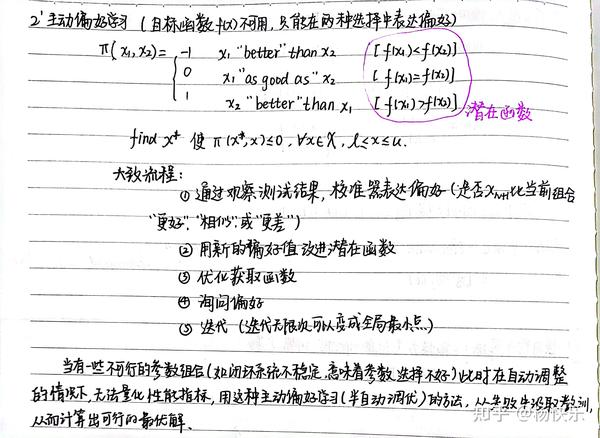 2' 主动偏好学习 (目标函数f(x)不可用,只能在两种选择中表达偏好)
π(x₁,x₂) = { -1 x₁ "better" than x₂ [f(x₁)<f(x₂)]
0 x₁ "as good as" x₂ [f(x₁)=f(x₂)]
1 x₂ "better" than x₁ [f(x₁)>f(x₂)]
潜在函数
find x* 使 π(x*,x)≤0, ∀x∈X, l≤x≤u.
大致流程:
① 通过观察测试结果,校准器表达偏好(是否x_{N+1}比当前组合
"更好""相似"或"更差")
② 用新的偏好值改进潜在函数
③ 优化获取函数
④ 询问偏好
⑤ 迭代 (迭代无限次可以变成全局最小点)
当有一些不可行的参数组合(如闭环系统不稳定,意味着参数选择不好)此时在自动调整
的情况下,无法量化性能指标,用这种主动偏好学习(半自动调优)的方法,从失败中汲取教训,
从而计算出可行的最优解.
知乎 @杨快乐